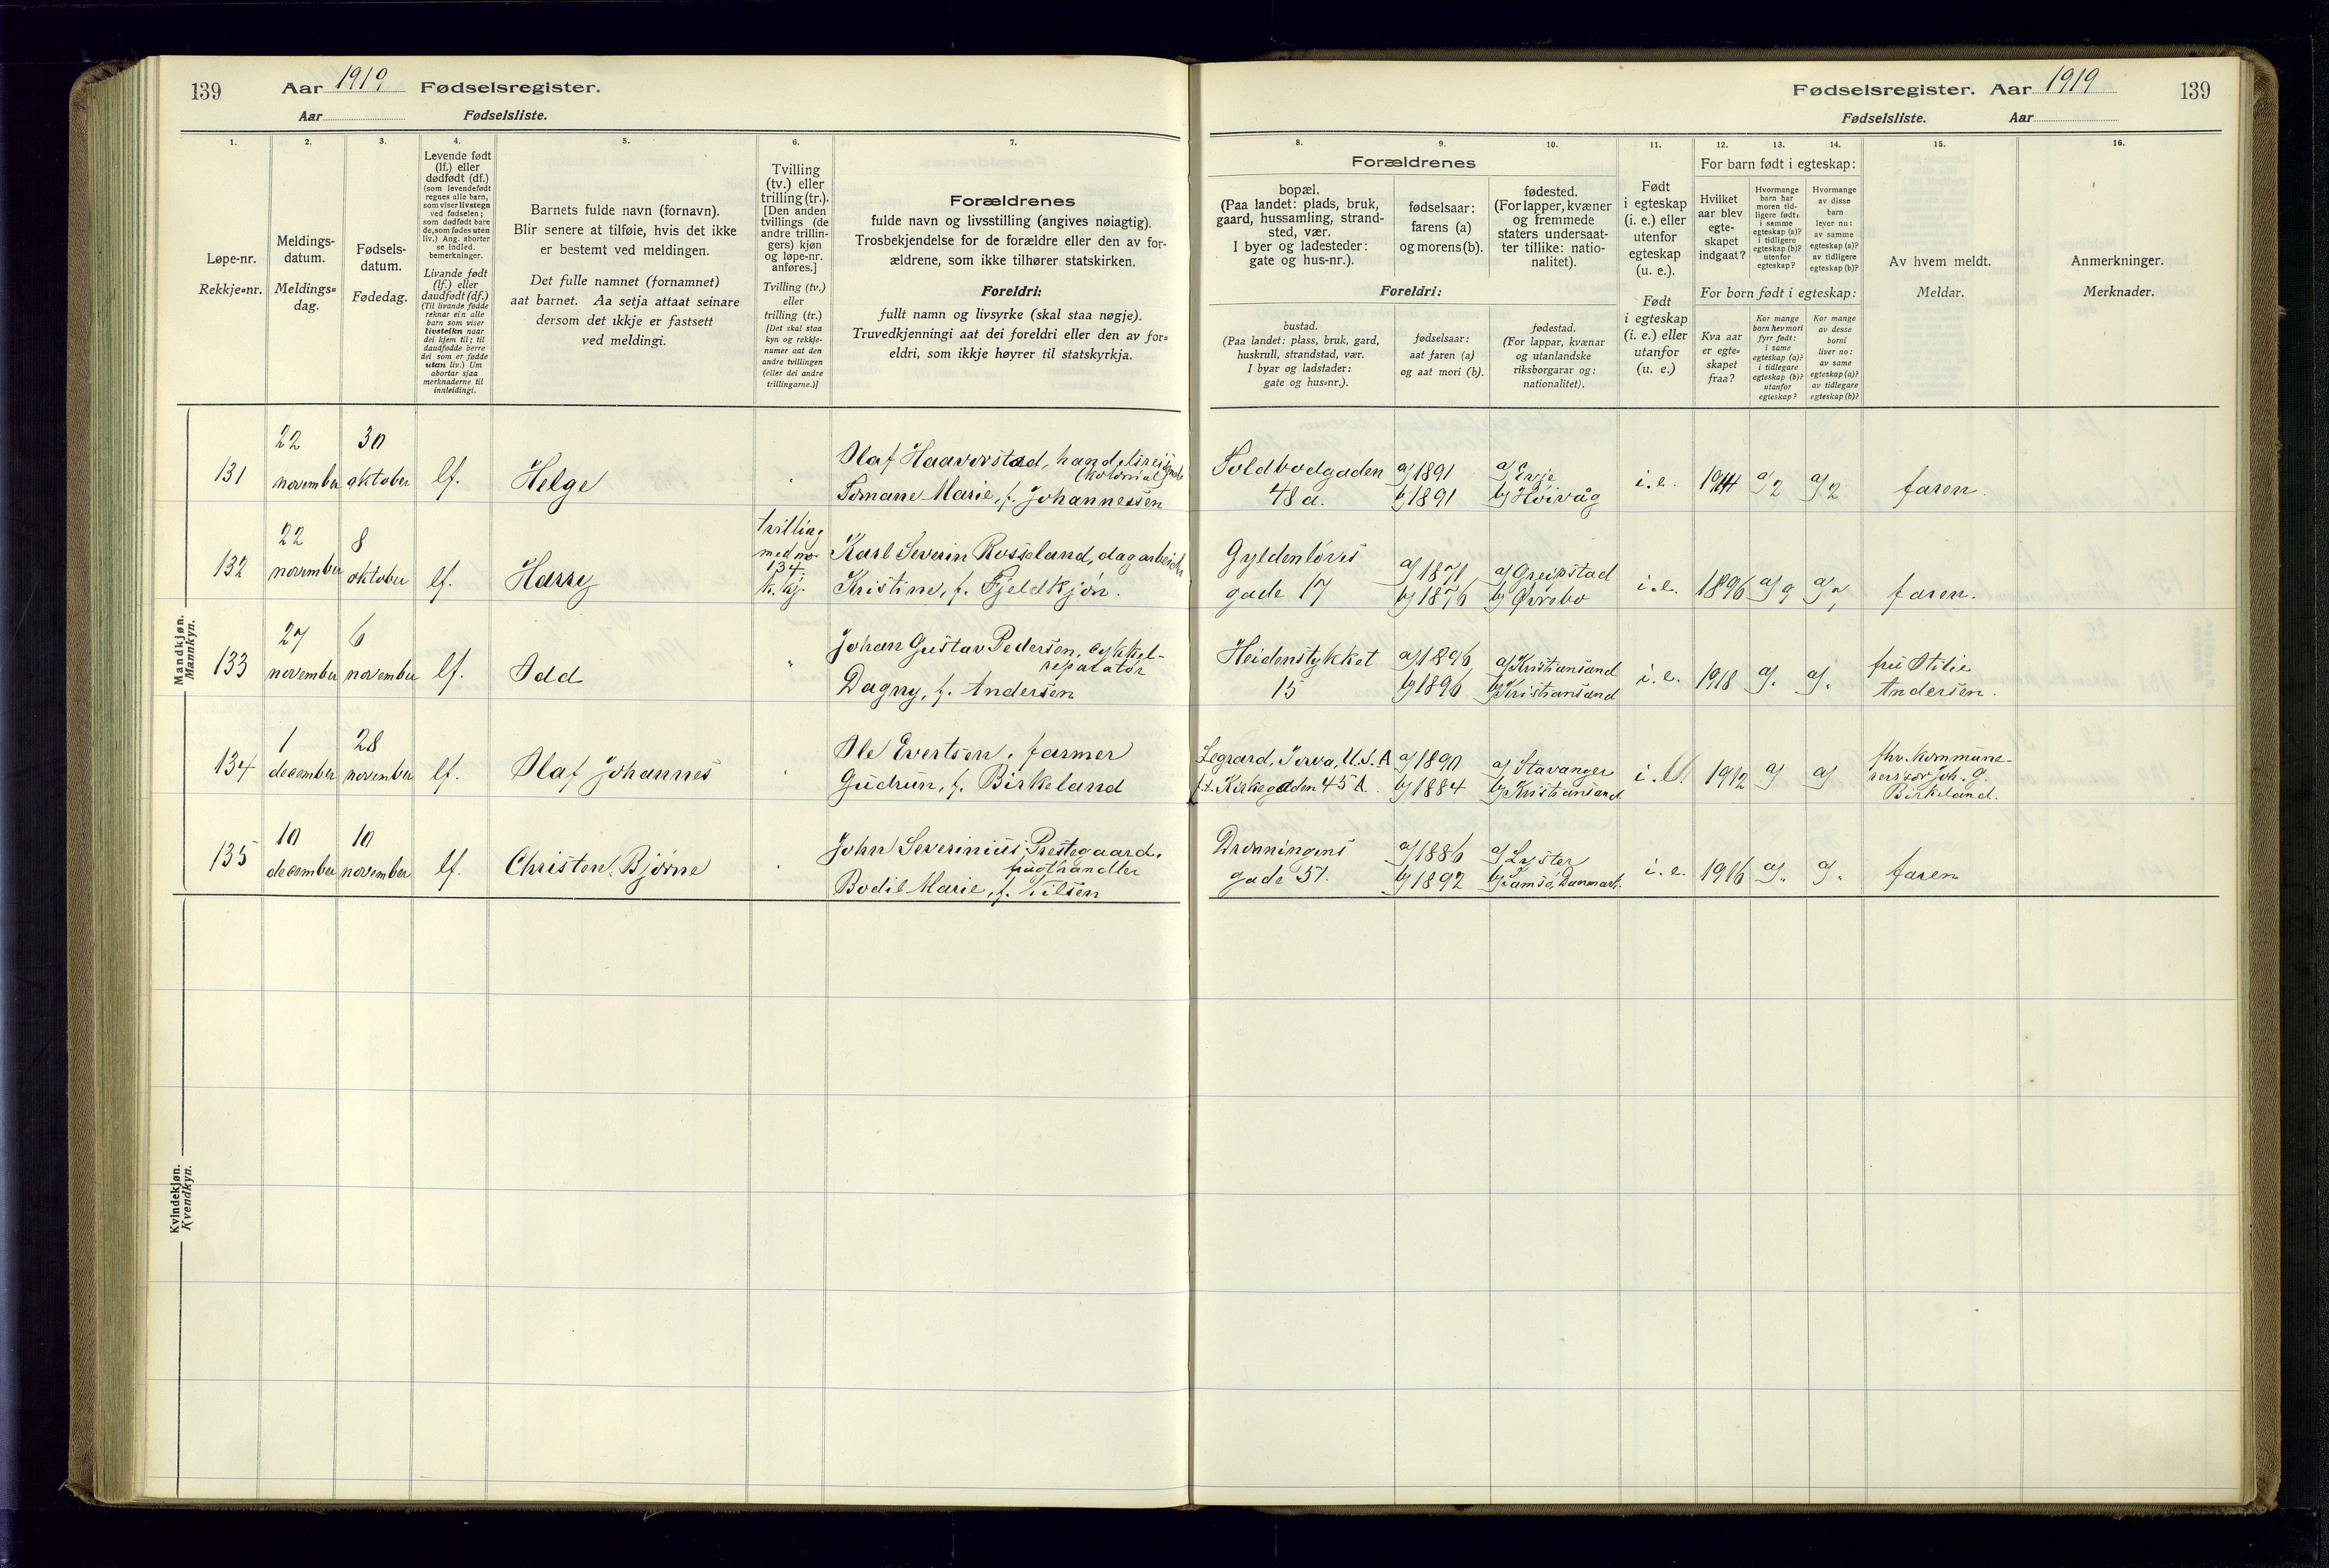 139 Aar 1919 Fødselsregister.
Aar Fødselsliste.
1. 2. 3. 4. 5. 6. 7.
Løpe-nr.
Rekkje=nr.
Meldings-
datum.
Meldings=
dag.
Fødsels-
datum.
Fødedag.
Levende født
(lf.) eller
dødfødt (df.)
(som levendefødt
regnes alle barn,
som viser livstegn
ved fødselen;
som dødfødt bare
de, som fødes uten
liv.) Ang. aborter
se indled.
bemerkninger.
Livande født
(lf.) eller
daudfødt (df.)
(Til livande fødde
reknar ein alle
barn som viser
livsteikn naar
dei kjem til; til
daudfødde berre
dei som er fødde
utan liv.) Um
abortar sjaa
merknaderne til
innleidingi.
Barnets fulde navn (fornavn).
Blir senere at tilføie, hvis det ikke
er bestemt ved meldingen.
Det fulle namnet (fornamnet)
aat barnet. Aa setja attaat seinare
dersom det ikkje er fastsett
ved meldingi.
Tvilling
(tv.) eller
trilling (tr.).
[Den anden
tvillings (de
andre trillin-
gers) kjøn
og løpe-nr.
anføres.]
Tvilling (tv.)
eller
trilling (tr.)
[Det skal staa
kyn og rekkje-
numer aat den
andre tvillingen
(eller dei andre
trillingarne.)]
Forældrenes
fulde navn og livsstilling (angives nøiagtig).
Trosbekjendelse for de forældre eller den av for-
ældrene, som ikke tilhører statskirken.
Foreldri:
fullt namn og livsyrke (skal staa nøgje).
Truvedkjenningi aat dei foreldri eller den av for=
eldri, som ikkje høyrer til statskyrkja.
Mandkjøn.
Mannkyn.
131
22
november
30
oktober
lf.
Helge
Olaf Haaverstad, handelsreisende
(kolonial)
Tomane Marie, f. Johannessen
132
22
november
8
oktober
lf.
Harry
tvilling
med no
134.
k.kj.
Karl Severin Rosseland, dagarbeider
Kristine, f. Fjeldkjøn.
133
27
november
6
november
lf.
Odd
Johan Gustav Pedersen, cykkel-
reparatør
Dagny, f. Andersen
134
1
december
28
november
lf.
Olaf Johannes
Ole Evertsen, farmer
Gudrun, f. Birkeland
135
10
december
10
november
lf.
Christen Bjørne
John Severinius Prestegaard,
frugthandler
Bodil Marie, f. Nilsen
Kvindekjøn.
Kvendkyn.
Fødselsregister. Aar 1919 139
Fødselsliste. Aar
8. 9. 10. 11. 12. 13. 14. 15. 16.
Forældrenes
bopæl.
(Paa landet: plads, bruk,
gaard, hussamling, strand-
sted, vær.
I byer og ladesteder:
gate og hus-nr.).
fødselsaar:
farens (a)
og morens (b).
fødested.
(For lapper, kvæner
og fremmede
staters undersaat-
ter tillike: natio-
nalitet).
Foreldri:
bustad.
(Paa landet: plass, bruk, gard,
huskrull, strandstad, vær.
I byar og ladstader:
gate og hus=nr.).
fødselsaar:
aat faren (a)
og aat mori (b).
fødestad.
(For lappar, kvænar
og utanlandske
riksborgarar og:
nationalitet).
Født
i egteskap
(i. e.) eller
utenfor
egteskap
(u. e.).
Født
i egteskap
(i. e.) eller
utanfor
(u. e.)
For barn født i egteskap:
Hvilket
aar blev
egte-
skapet
indgaat?
Hvormange
barn har
moren tid-
ligere født:
i samme
egteskap (a)?
i tidligere
egteskap (b)?
utenfor
egteskap?
Hvormange
av disse
barn
lever nu:
av samme
egteskap (a)?
av tidligere
egteskap (b)?
For born født i egteskap:
Kva aar
er egte=
skapet
fraa?
Kor mange
born hev mori
fyrr født:
i same
egteskap (a)?
i tidlegare
egteskap (b)?
utanfor
egteskap?
Kor mange
av desse
borni
liver no:
av same
egteskap (a)?
av tidlegare
egteskap (b)?
Av hvem meldt.
Meldar.
Anmerkninger.
Merknader.
Toldbodgaden
48 a.
a) 1891
b) 1891
a) Evje
b) Høivåg
i. e.
1914
a) 2
a) 2
faren.
Gyldenløves
gade 17
a) 1871
b) 1876
a) Greipstad
b) Øvrebo
i. e.
1896
a) 9
a) 7
faren.
Heidenstykket
15
a) 1896
b) 1896
a) Kristiansand
b) Kristiansand
i. e.
1918
a).
a).
fru Otilie
Andersen.
Legrand, Iowa, U.S.A
f.t. Kirkegaden 45 A.
a) 1890
b) 1884
a) Stavanger
b) Kristiansand
i. e.
1912
a)
a)
fhv. kommune-
revisor Joh. G.
Birkeland.
Dronningens
gade 57.
a) 1886
b) 1892
a) Lyster
b) Samsø, Danmark.
i. e.
1916
a).
a).
faren